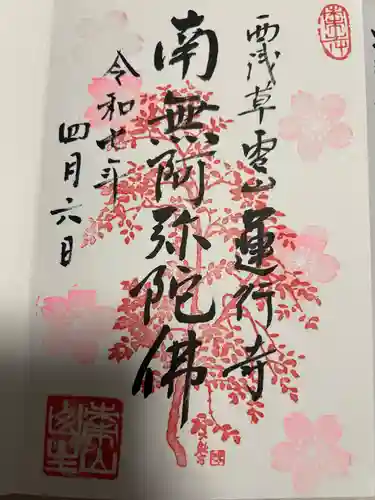 西浅草 霊山 運行寺
南無阿弥陀佛
令和七年
四月六日